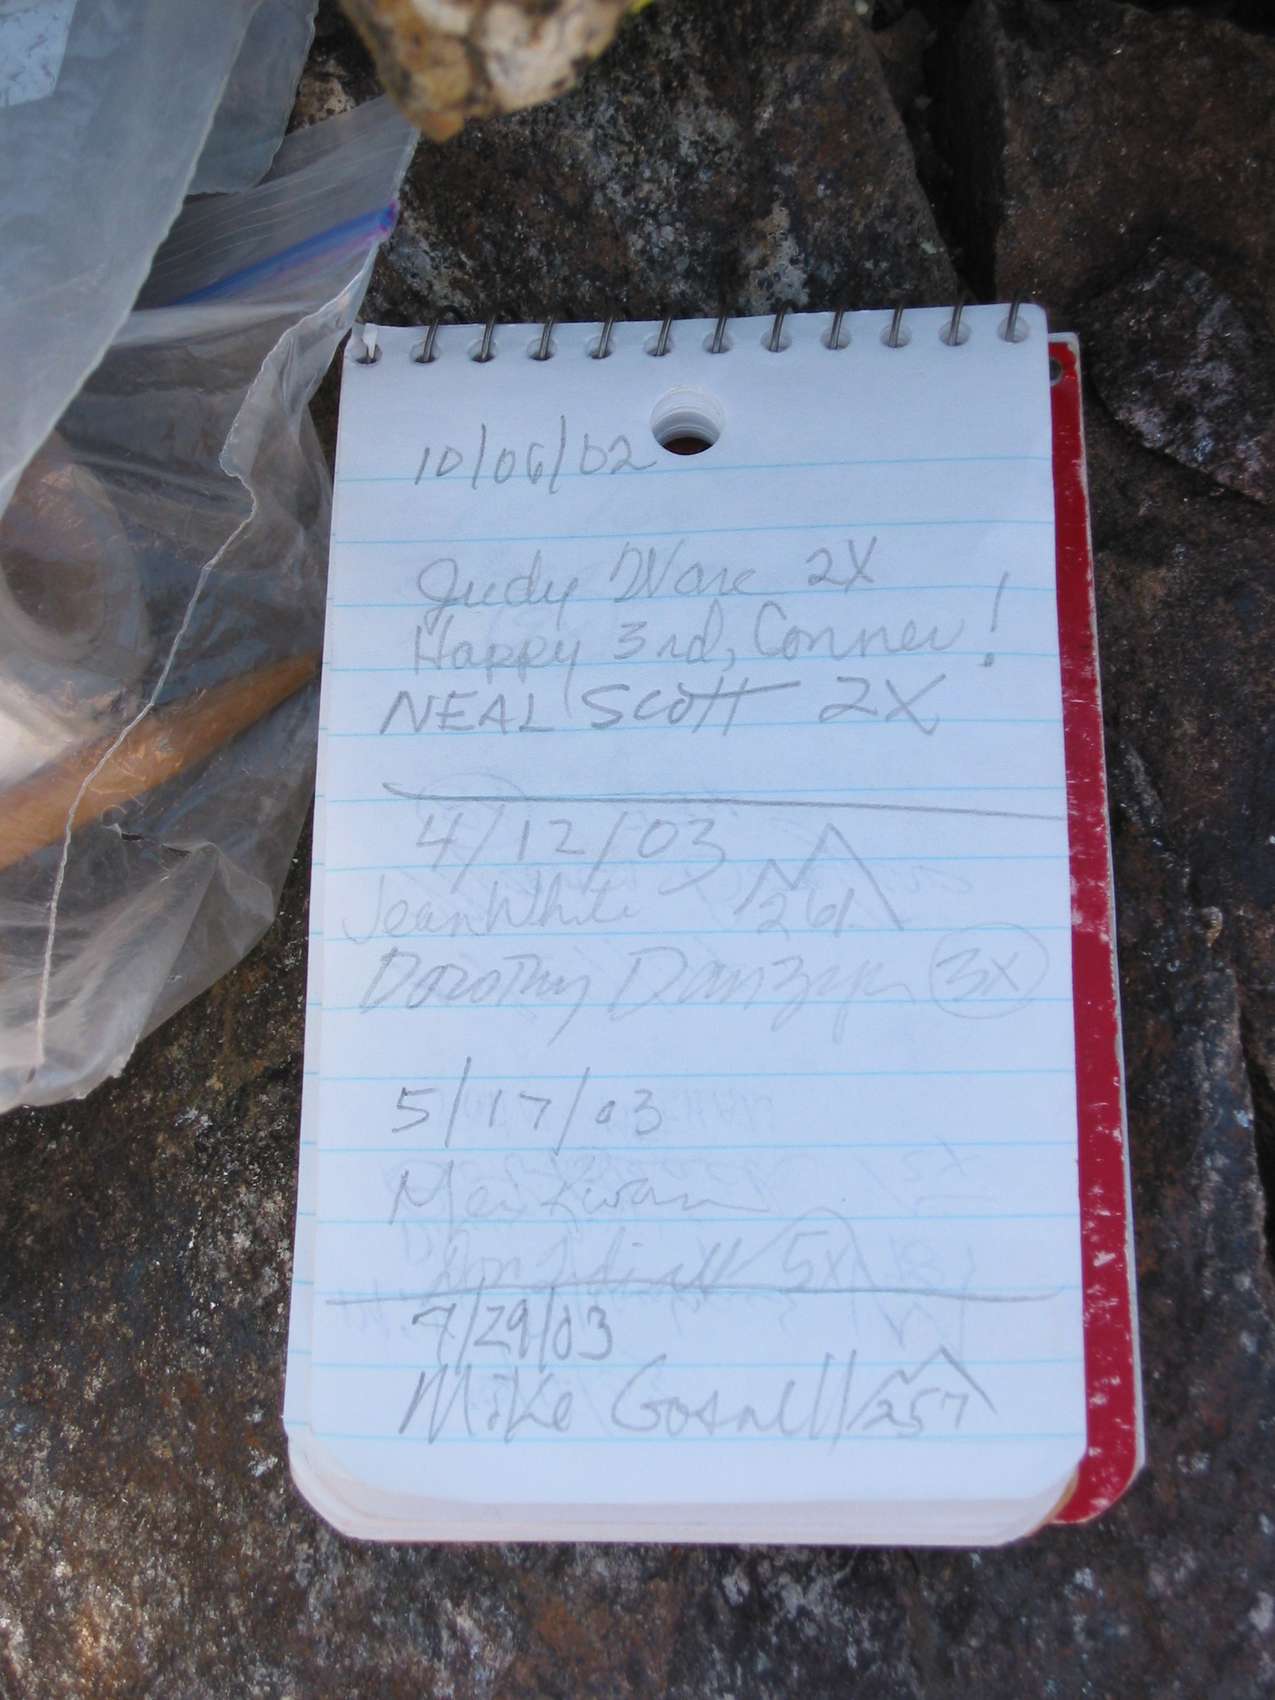 10/06/02
Judy Ware 2X
Happy 3rd, Conner!
NEAL SCOTT 2X
4/12/03
Jean White 261
Dorothy 3X
5/17/03
5X
7/29/03
Mike Gosnell 257